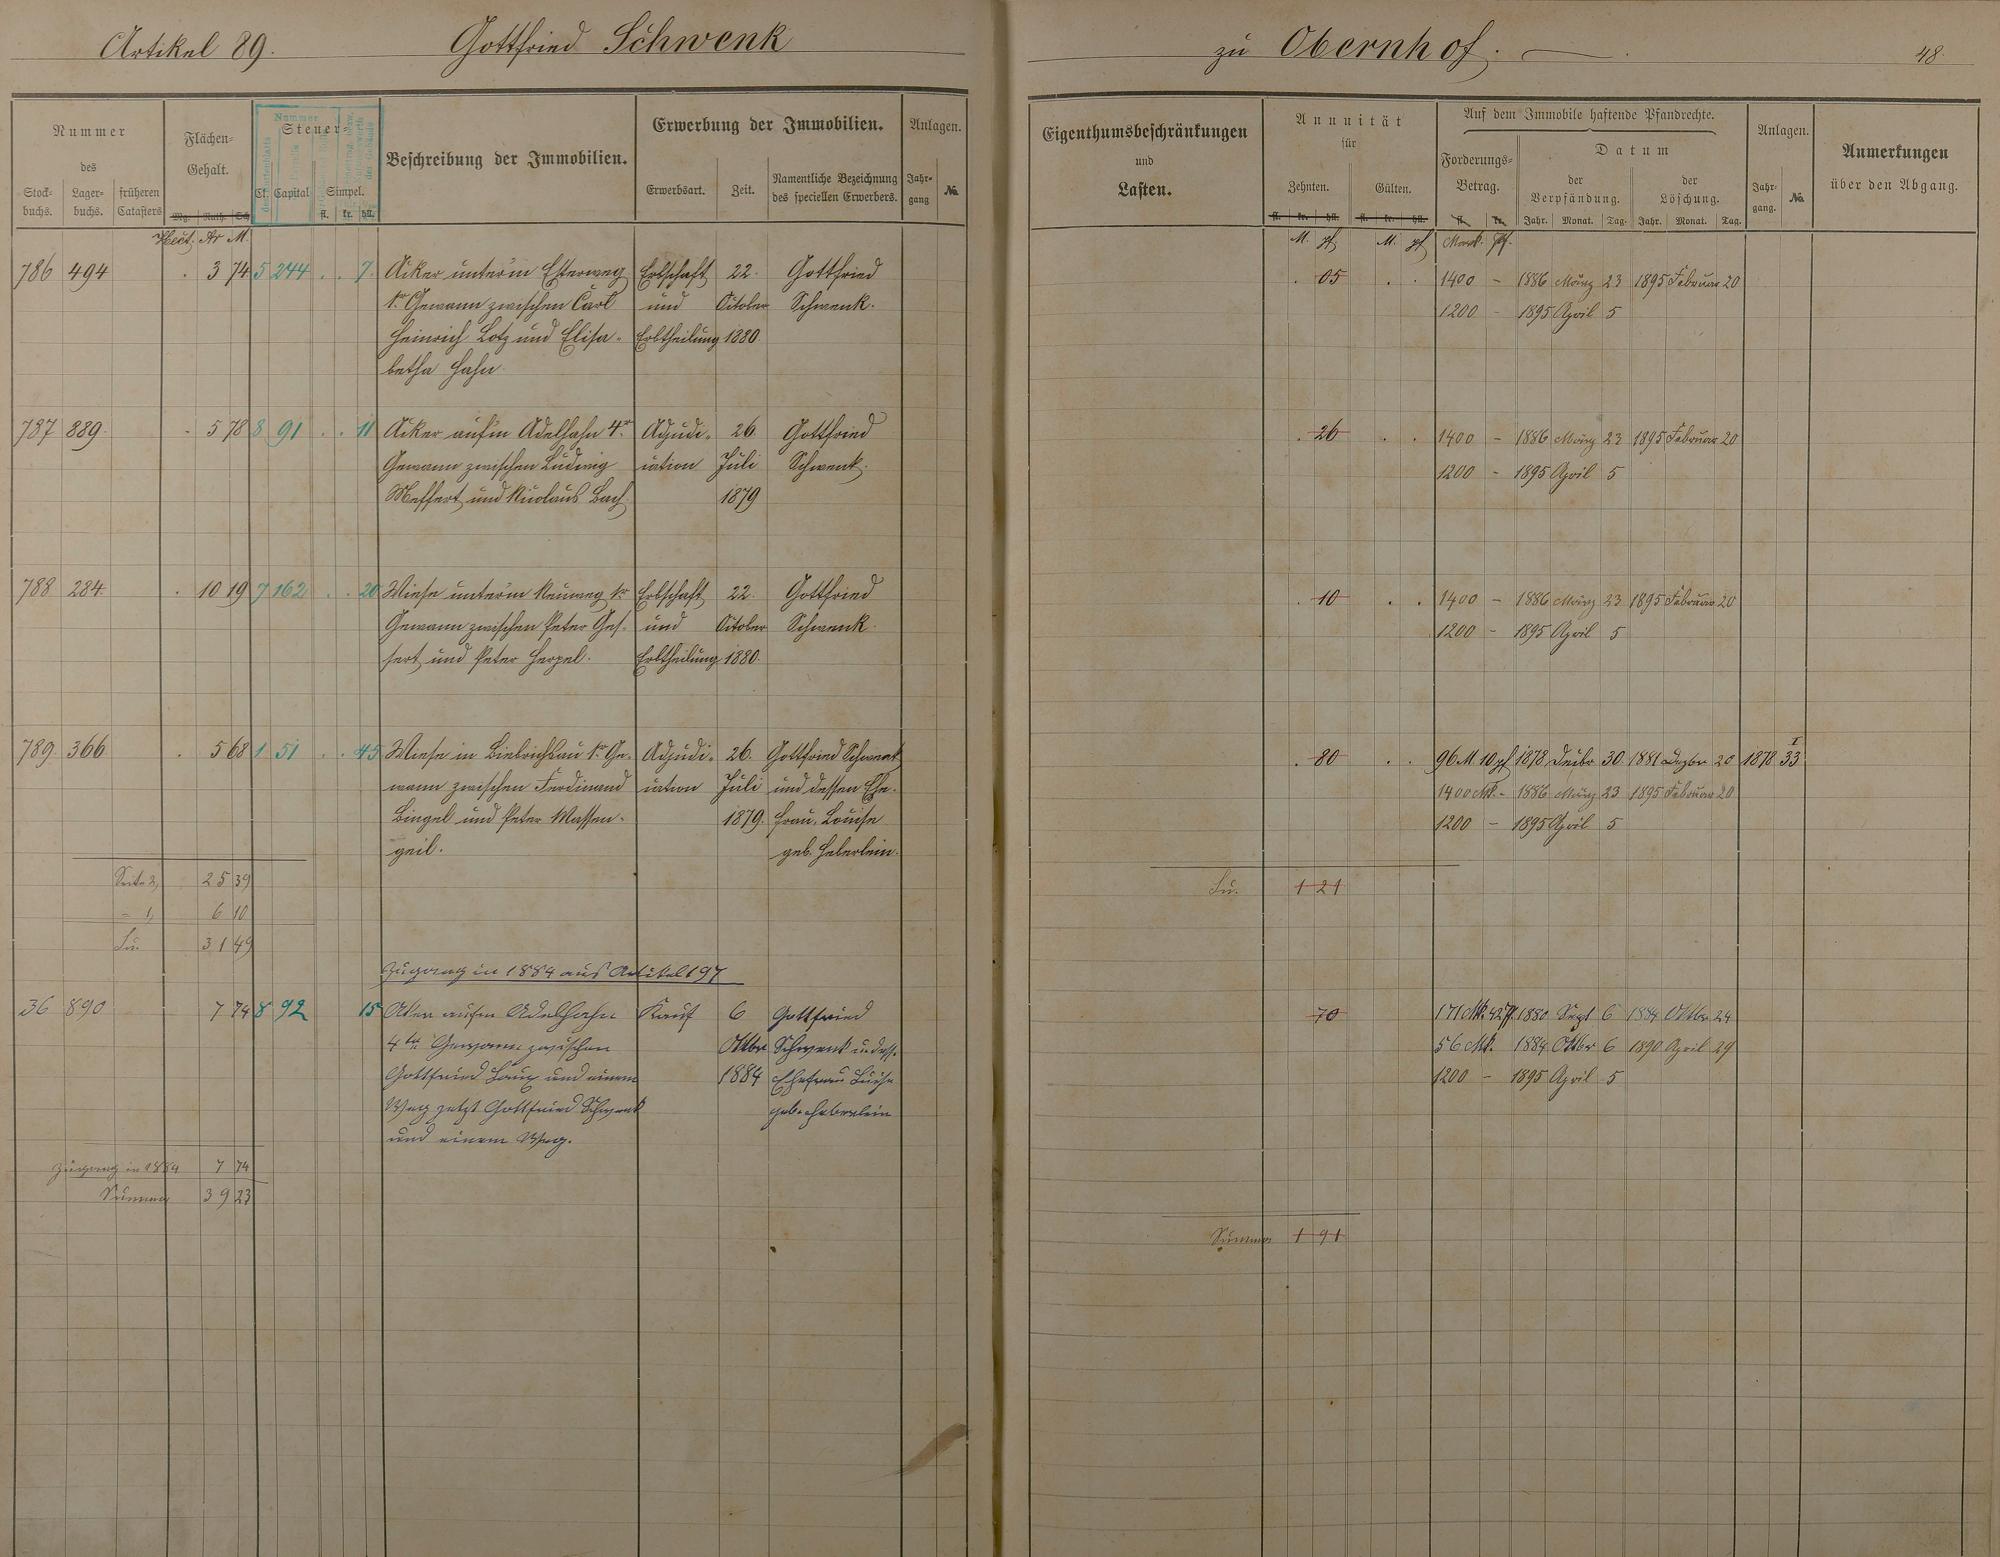 Artikel 89. Gottfried Schwenk zu Obernhof. 48.
Nummer
des
Stock-buchs. Lager-buchs. früheren Catasters
Flächen-Gehalt.
Mg. Ruth. Sch
Hect. Ar M.
Nummer
Steuer
Cl. Capital Simpel.
fl. kr. hll.
Beschreibung der Immobilien.
Erwerbung der Immobilien.
Erwerbsart. Zeit. Namentliche Bezeichnung des speciellen Erwerbers.
Anlagen.
Jahr-gang No.
Eigenthumsbeschränkungen
und
Lasten.
Annuität
für
Zehnten. Gülten.
fl. kr. hll. fl. kr. hll.
M. pf. M. pf
Auf dem Immobile haftende Pfandrechte.
Forderungs-Betrag.
fl. kr.
Mark. Pf.
Datum
der Verpfändung. der Löschung.
Jahr. Monat. Tag. Jahr. Monat. Tag.
Anlagen.
Jahr-gang. No.
Anmerkungen
über den Abgang.
786 494 . 3 74 5 244 . . 7. Acker unter'm Esterweg Erbschaft 22. Gottfried . 05 . . 1400 - 1886 März 23 1895 Februar 20
1r Gewann zwischen Carl und October Schwenk. 1200 - 1895 April 5
Heinrich Lotz und Elisa- Erbtheilung 1880.
betha Hahn.
787 889. . 5 78 8 91 . . 11 Acker auf'm Adelhahn 4r Adjudi- 26 Gottfried . 26 . . 1400 - 1886 März 23 1895 Februar 20
Gewann zwischen Ludwig cation Juli Schwenk. 1200 - 1895 April 5
Meffert und Nicolaus Bach 1879
788 284 . 10 19 7 162 . . 20 Wiese unter'm Neuweg 1r Erbschaft 22. Gottfried . 10 . . 1400 - 1886 März 23 1895 Februar 20
Gewann zwischen Peter Gef- und October Schwenk. 1200 - 1895 April 5
fert und Peter Herpel. Erbtheilung 1880.
789. 366 . 5 68 1 51 . . 45 Wiese in Biebrichsau 1r Ge- Adjudi- 26. Gottfried Schwenk . 80 . . 96 M 10 pf 1878 Decbr 30. 1881 Dezbr 20 1878 I 33
wann zwischen Ferdinand cation Juli und dessen Ehe- 1400 Mk. - 1886 März 23 1895 Februar 20
Bingel und Peter Massen- 1879. frau, Louise 1200 - 1895 April 5
geil. geb. Heberlein.
Seite 2, 25 39 Su. 1 21
" 1, 6 10
Su. 31 49
Zugang in 1884 aus Artikel 197
36 890 7 74 8 92 15 Acker aufm Adelhahn Kauf 6 Gottfried 70 171 Mk. 42 pf. 1880 Sept 6 1884 Oktbr. 24
4ter Gewann zwischen Oktbr Schwenk u. dess. 56 Mk. 1884 Oktbr 6 1890 April 29
Gottfried Laux und einem 1884 Ehefrau Luise 1200 - 1895 April 5
Weg jetzt Gottfried Schwenk geb. Heberlein
und einem Weg.
Zugang in 1884 7 74
Summa 39 23
Summa 1 91